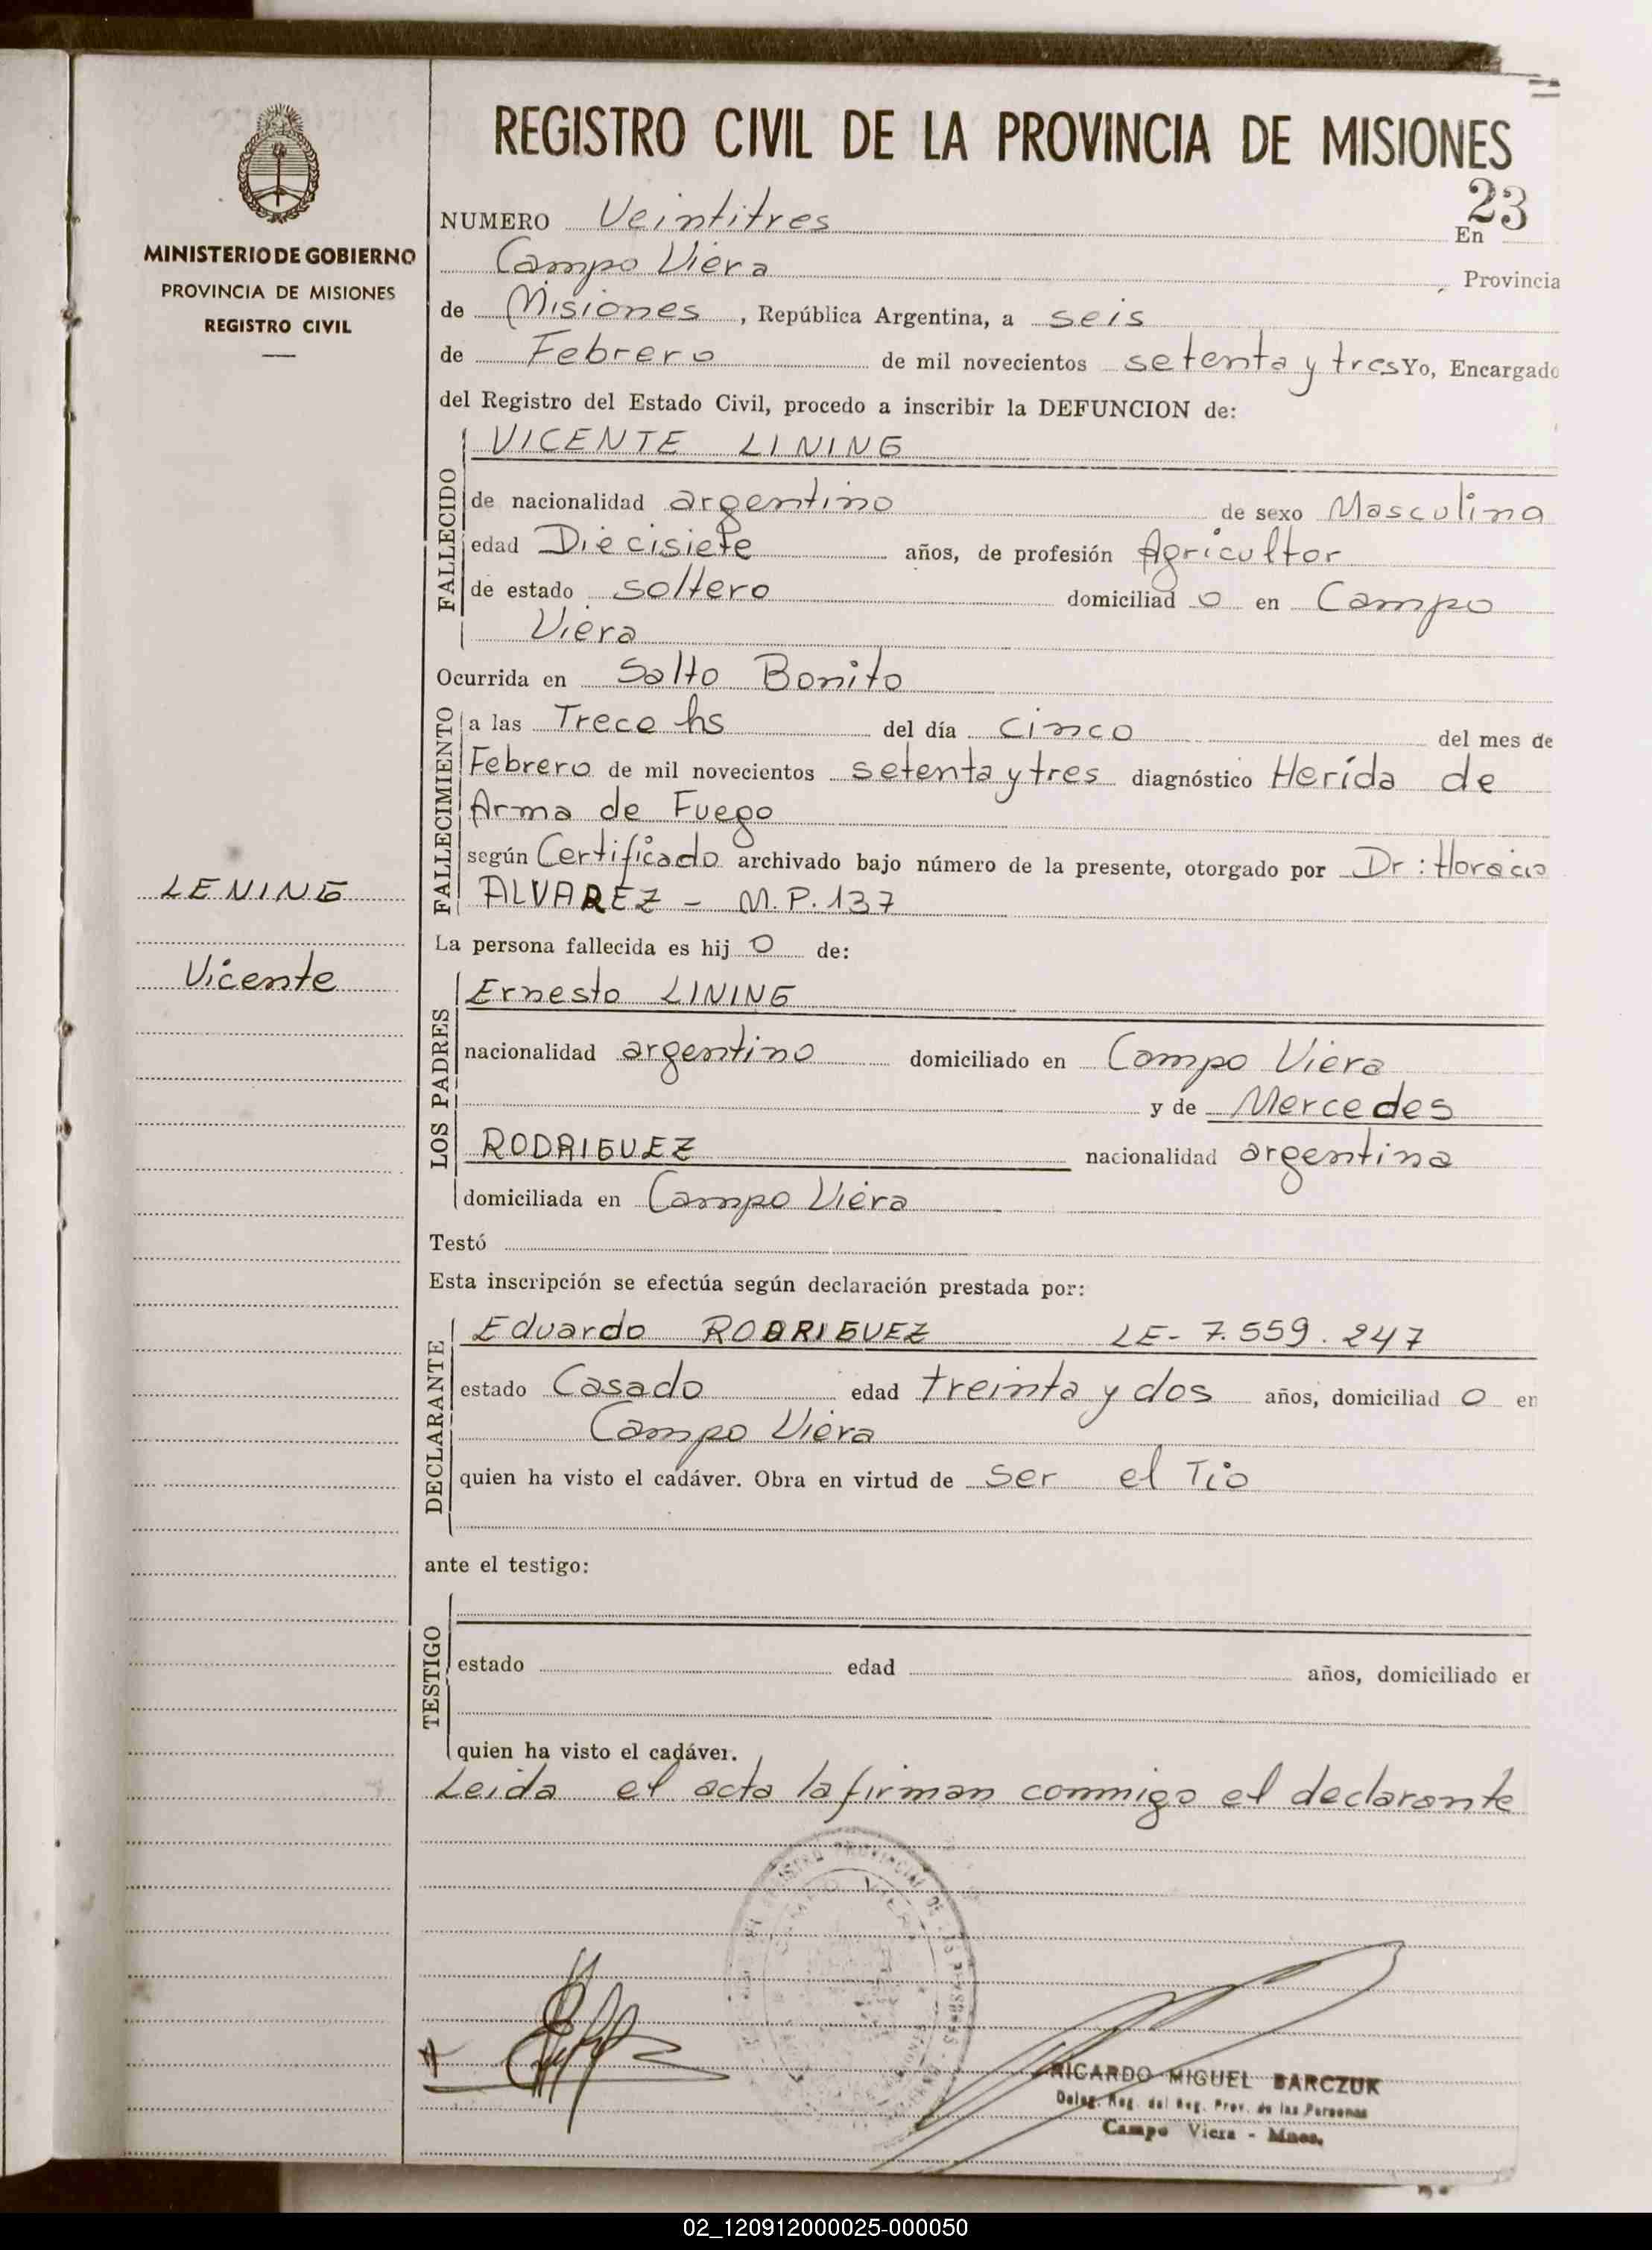 REGISTRO CIVIL DE LA PROVINCIA DE MISIONES
23
MINISTERIO DE GOBIERNO
PROVINCIA DE MISIONES
REGISTRO CIVIL
NUMERO Veintitres En
Campo Viera, Provincia
de Misiones, República Argentina, a seis
de Febrero de mil novecientos setenta y tres Yo, Encargado
del Registro del Estado Civil, procedo a inscribir la DEFUNCION de:
FALLECIDO
VICENTE LINING
de nacionalidad argentino de sexo Masculina
edad Diecisiete años, de profesión Agricultor
de estado soltero domiciliad o en Campo
Viera
Ocurrida en Salto Bonito
FALLECIMIENTO
a las Trece hs del día cinco del mes de
Febrero de mil novecientos setenta y tres diagnóstico Herida de
Arma de Fuego
según Certificado archivado bajo número de la presente, otorgado por Dr: Horacio
ALVAREZ - M.P. 137
LENING
Vicente
La persona fallecida es hij o de:
LOS PADRES
Ernesto LINING
nacionalidad argentino domiciliado en Campo Viera
y de Mercedes
RODRIGUEZ nacionalidad argentina
domiciliada en Campo Viera
Testó
Esta inscripción se efectúa según declaración prestada por:
DECLARANTE
Eduardo RODRIGUEZ LE- 7.559.247
estado Casado edad treinta y dos años, domiciliad o en
Campo Viera
quien ha visto el cadáver. Obra en virtud de Ser el Tio
ante el testigo:
TESTIGO
estado edad años, domiciliado en
quien ha visto el cadáver.
Leida el acta la firman conmigo el declarante
RICARDO MIGUEL BARCZUK
Deleg. Reg. del Reg. Prov. de las Personas
Campo Viera - Mnes.
02_120912000025-000050